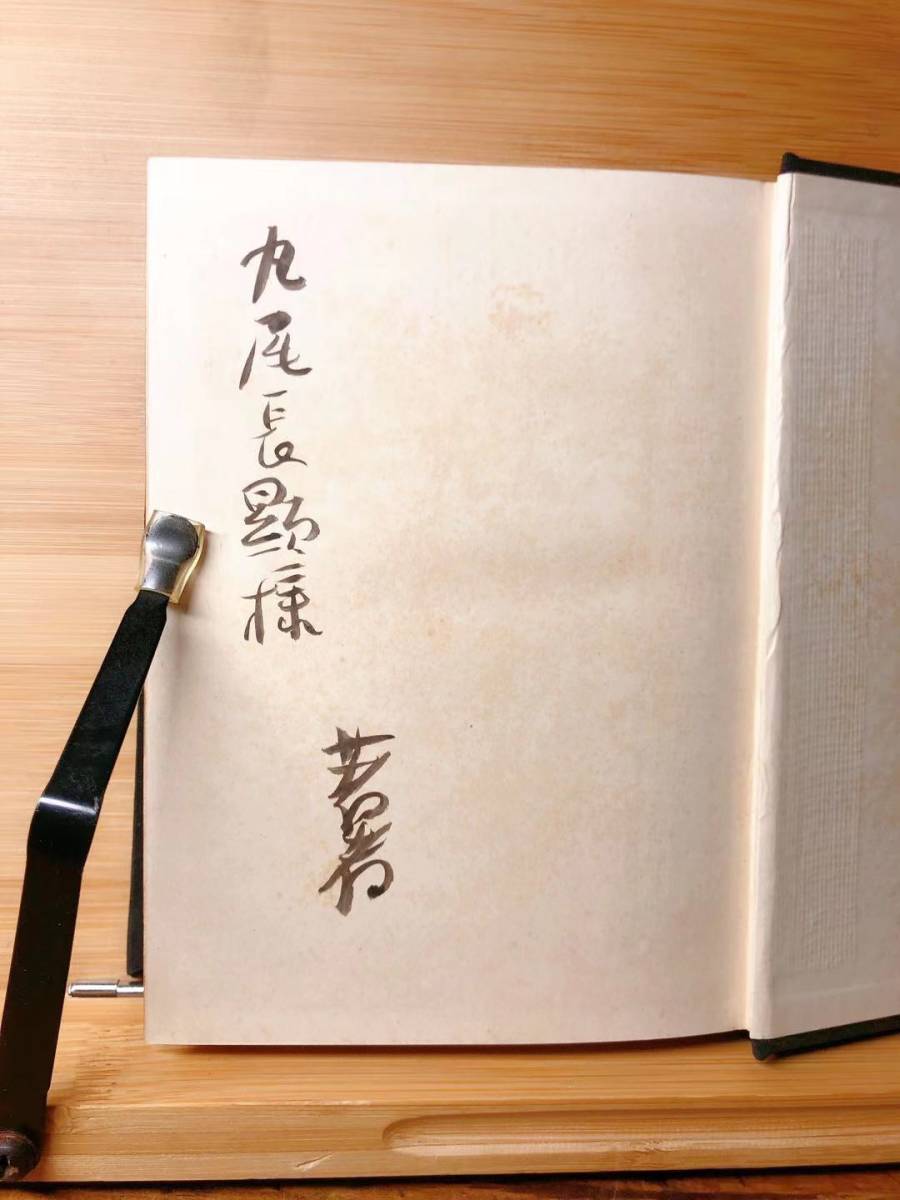 丸尾長顕様
著者